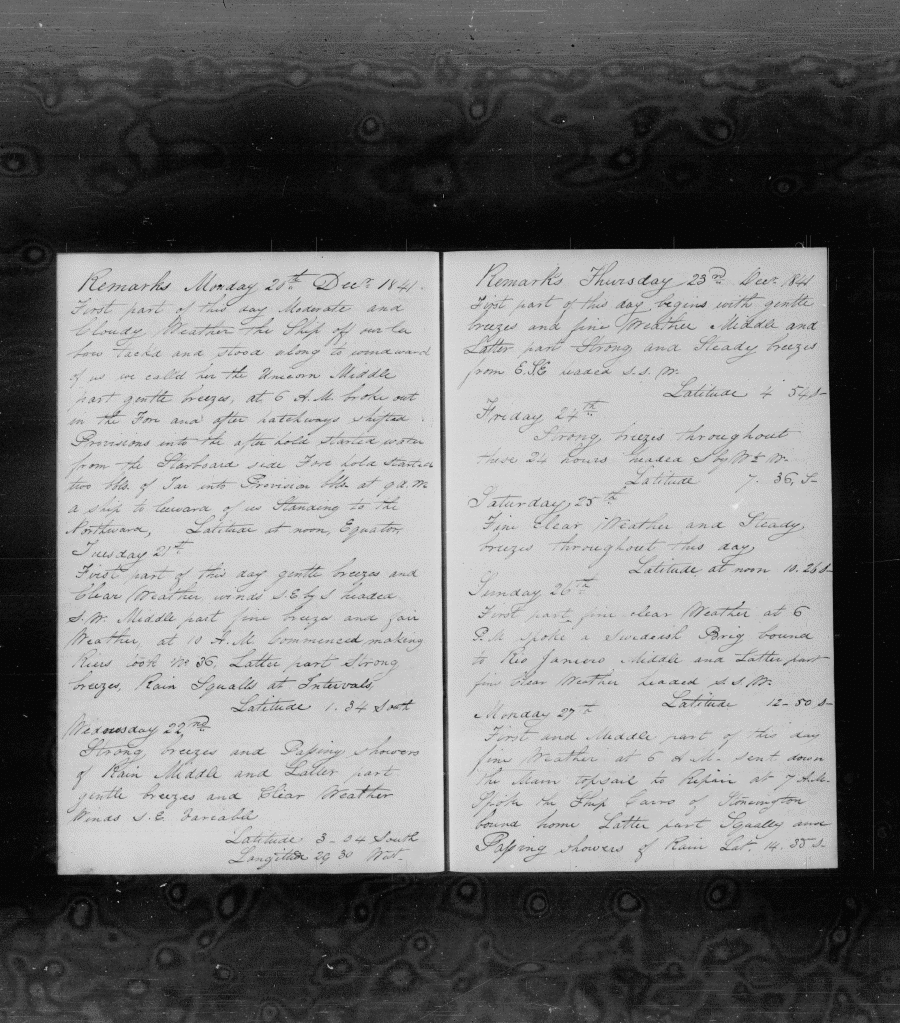 Remarks Monday 20th Decr 1841.
First part of this day Moderate and
Cloudy Weather the Ship off our Lee
bow tack'd and stood along to windward
of us we called her the Unicorn Middle
part gentle breezes, at 6 A.M. broke out
in the Fore and after hatchways shifted
Provisions into the after hold started water
from the Starboard side Fore hold started
two bbls. of Tar into Provision bbls. at 9 a.m
a ship to leeward of us Standing to the
Northward, Latitude at noon, Equator,
Tuesday 21st
First part of this day gentle breezes and
Clear Weather winds S.E by S headed
S.W. Middle part fine breezes and fair
Weather, at 10 A.M Commenced making
Latter part Strong
breezes, Rain Squalls at Intervals,
Latitude 1. 34 South
Wednesday 22nd
Strong breezes and Passing showers
of Rain Middle and Latter part
gentle breezes and Clear Weather
Winds S.E. Variable
Latitude 3 - 04 South
Longitude 29 30 West-
Remarks Thursday 23rd Decr. 1841
First part of this day begins with gentle
breezes and fine Weather Middle and
Latter part Strong and Steady breezes
from E.SE headed S.S.W.
Latitude 4 54 S-
Friday 24th
Strong breezes throughout
these 24 hours headed S by W½ W-
Latitude 7. 36, S-
Saturday 25th
Fine Clear Weather and Steady
breezes throughout this day,
Latitude at noon 10.26 S-
Sunday 26th
First part fine clear Weather at 6
P.M spoke a Swedish Brig bound
to Rio Janeiro Middle and Latter part
fine Clear Weather headed S.S.W.
Latitude 12-50 S-
Monday 27th
First and Middle part of this day
fine Weather at 6 A.M- sent down
the Main topsail to Repair at 7 A.M-
Spoke the Ship of Stonington
bound home Latter part Squally and
Passing showers of Rain Lat. 14. 35 S-